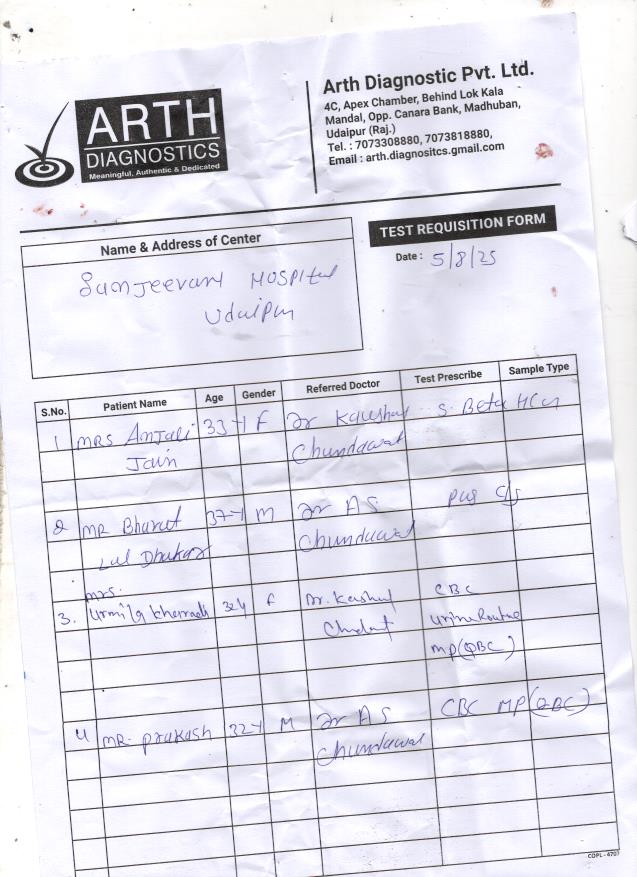 ARTH
DIAGNOSTICS
Meaningful, Authentic & Dedicated
Arth Diagnostic Pvt. Ltd.
4C, Apex Chamber, Behind Lok Kala
Mandal, Opp. Canara Bank, Madhuban,
Udaipur (Raj.)
Tel. : 7073308880, 7073818880,
Email : arth.diagnositcs.gmail.com
TEST REQUISITION FORM
Date : 5/8/25
Name & Address of Center
Sanjeevani Hospital
Udaipur
S.No. Patient Name Age Gender Referred Doctor Test Prescribe Sample Type
1 Mrs Anjali 33Y F Dr Kaushal S. Beta HCG
Jain Chundawat
2 MR Bharat 37Y M Dr A S Pus C/S
Lal Dhakar Chundawat
Mrs. CBC
3. Urmila 32Y F Dr. Kaushal Urine Routine
MP(QBC)
4 MR. Prakash 32Y M Dr A S CBC MP(QBC)
Chundawat
CDPL - 4707